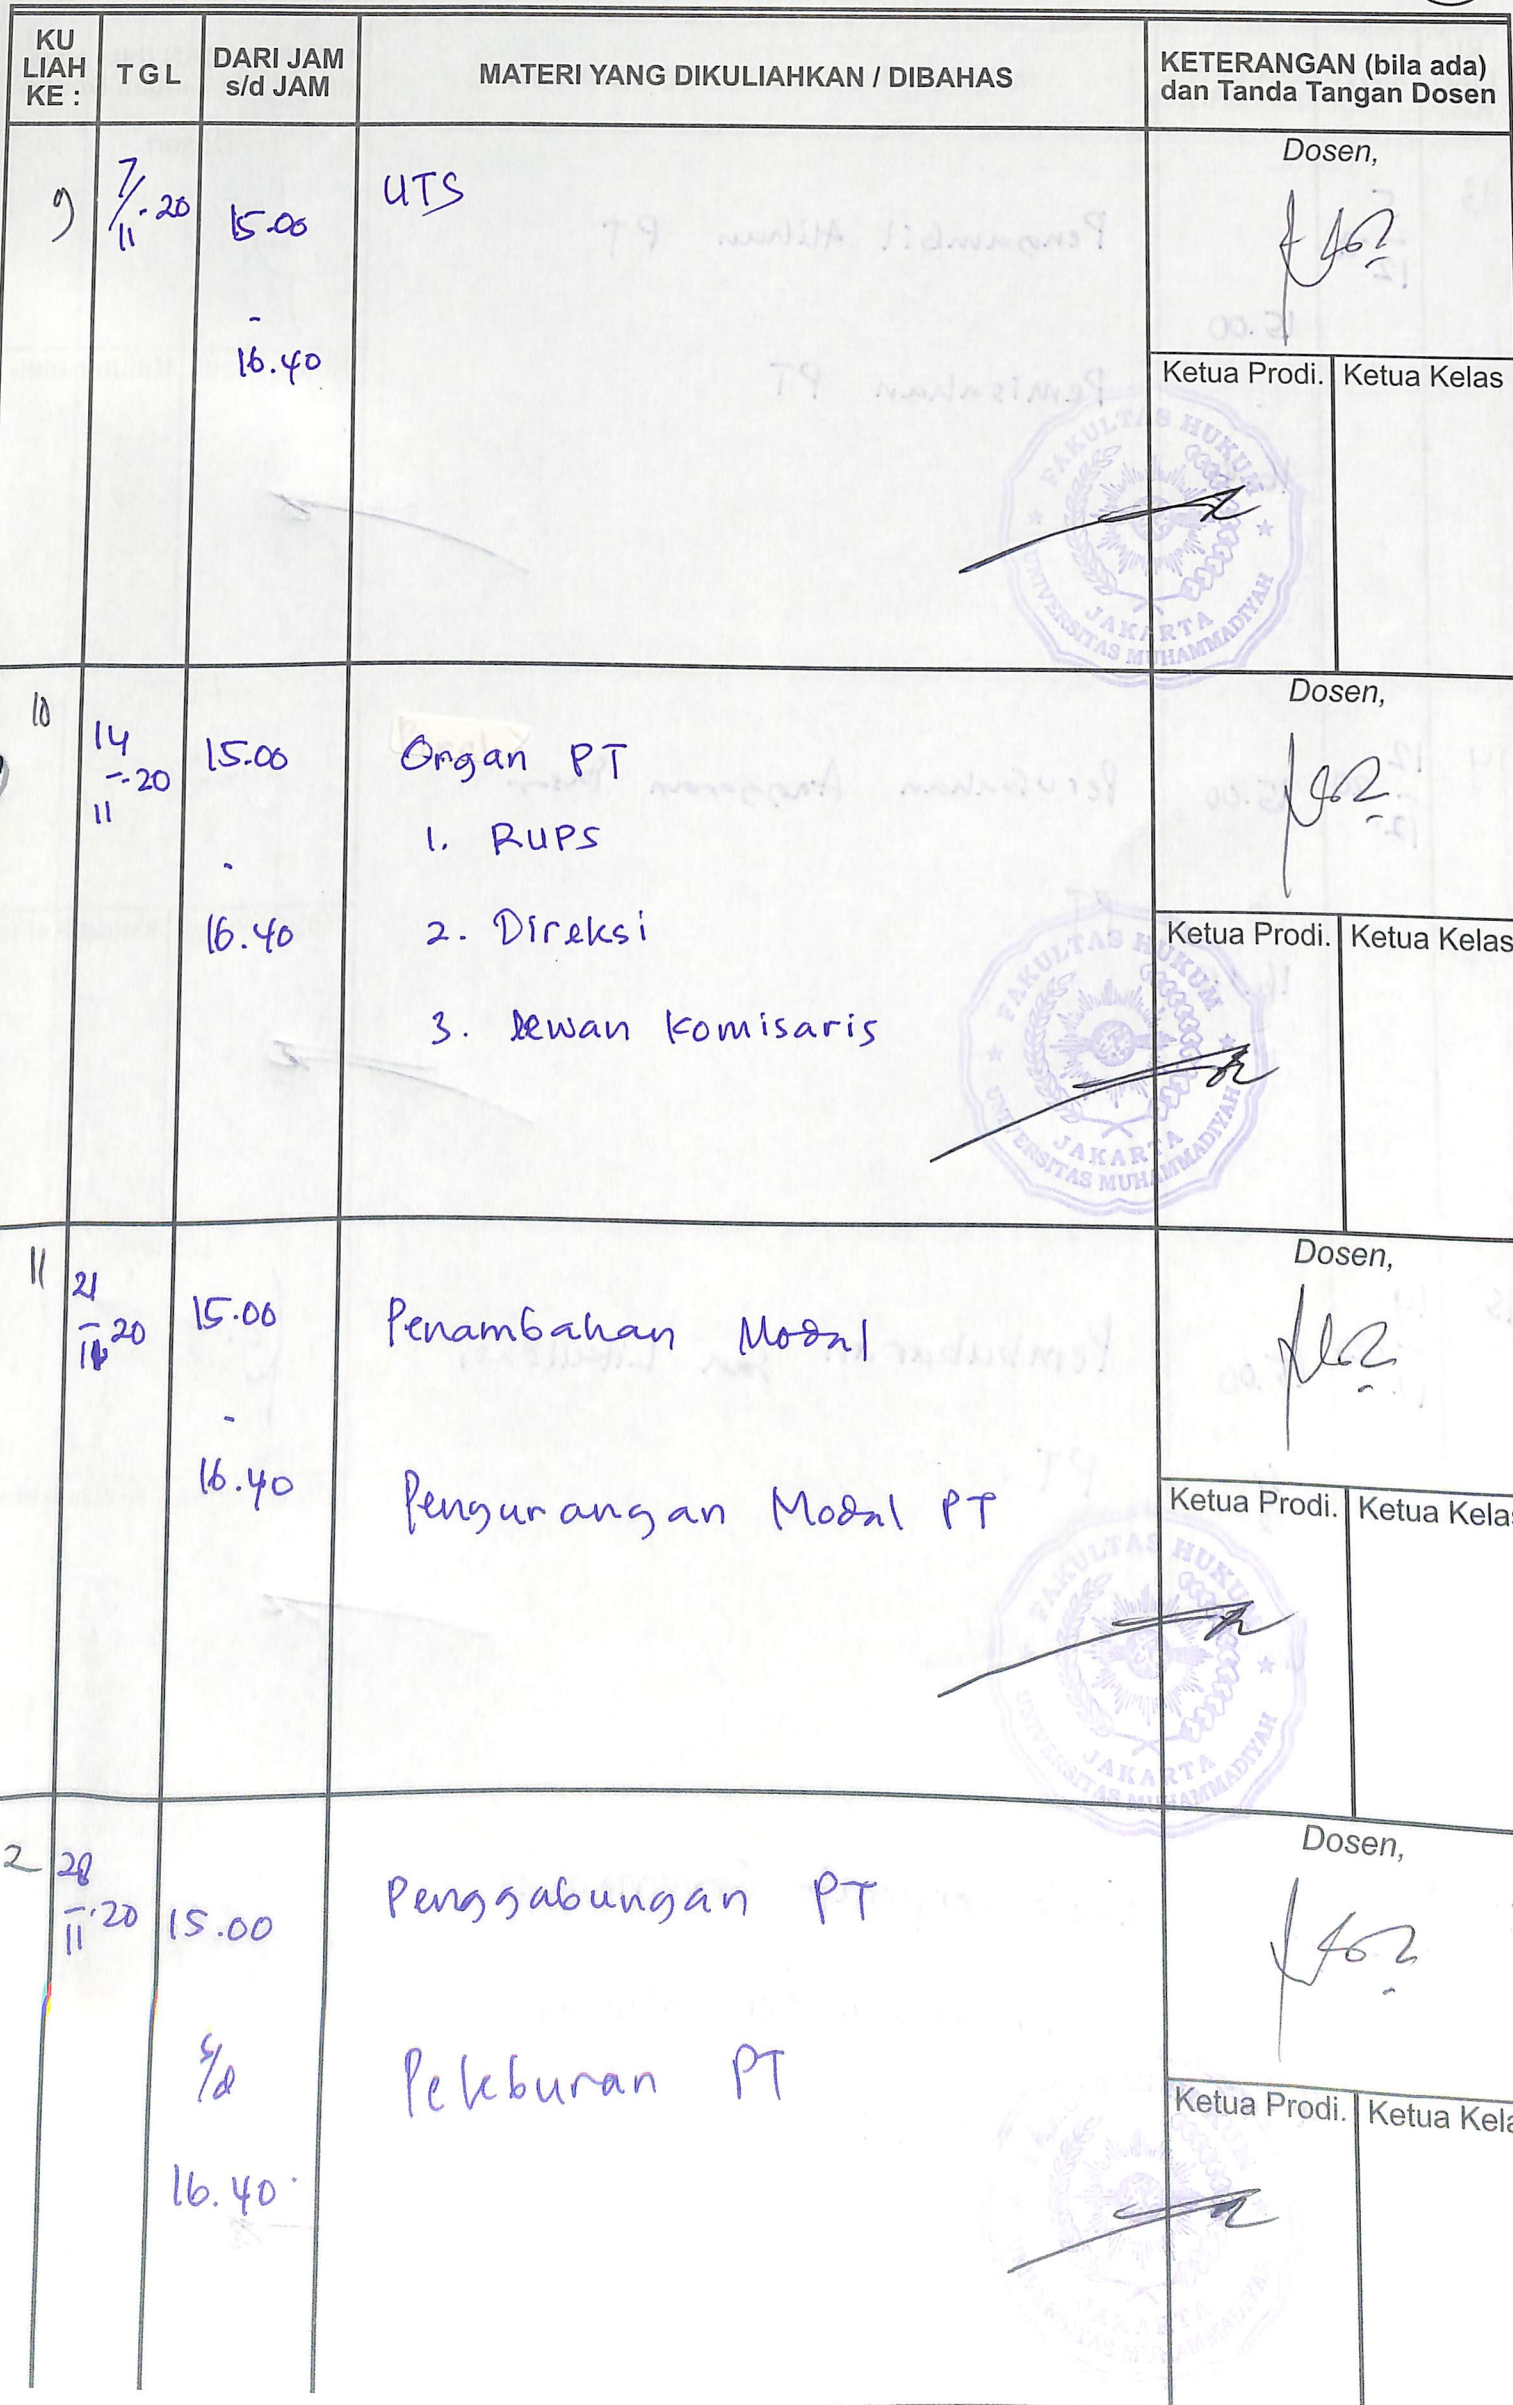 KU
LIAH
KE :
TGL
DARI JAM
s/d JAM
MATERI YANG DIKULIAHKAN / DIBAHAS
KETERANGAN (bila ada)
dan Tanda Tangan Dosen
9
7/11-20
15.00
-
16.40
UTS
Dosen,
Ketua Prodi.
Ketua Kelas
FAKULTAS HUKUM
UNIVERSITAS MUHAMMADIYAH
JAKARTA
10
14/11-20
15.00
-
16.40
Organ PT
1. RUPS
2. Direksi
3. Dewan Komisaris
Dosen,
Ketua Prodi.
Ketua Kelas
FAKULTAS HUKUM
UNIVERSITAS MUHAMMADIYAH
JAKARTA
11
21/11 20
15.00
-
16.40
Penambahan Modal
Pengurangan Modal PT
Dosen,
Ketua Prodi.
Ketua Kelas
FAKULTAS HUKUM
UNIVERSITAS MUHAMMADIYAH
JAKARTA
2
28/11-20
15.00
s/d
16.40
Penggabungan PT
Peleburan PT
Dosen,
Ketua Prodi.
Ketua Kela
JAKARTA